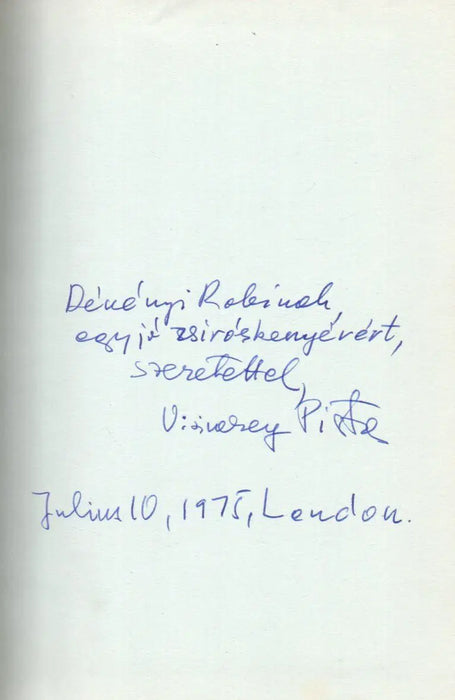 Dévényi Robinak,
egy jó zsiróskenyérért,
szeretettel,
Vizinczey Pista
Julius 10, 1975, London.